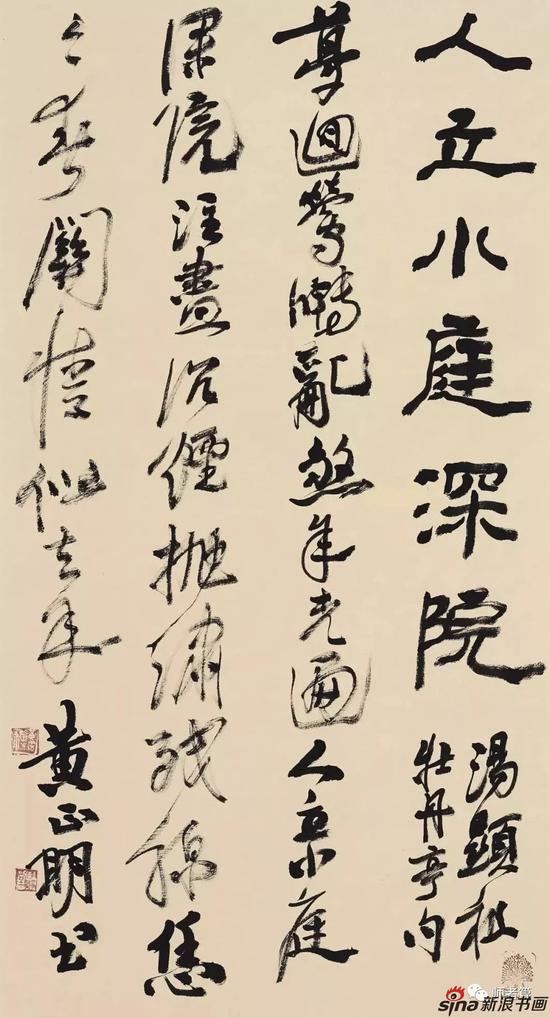 人立小庭深院
湯顯祖
牡丹亭句
夢迴鶯囀亂煞年光遍人立小庭
深院注盡沉煙拋繡殘線恁
今春關情似去年
黃正明書
sina新浪书画